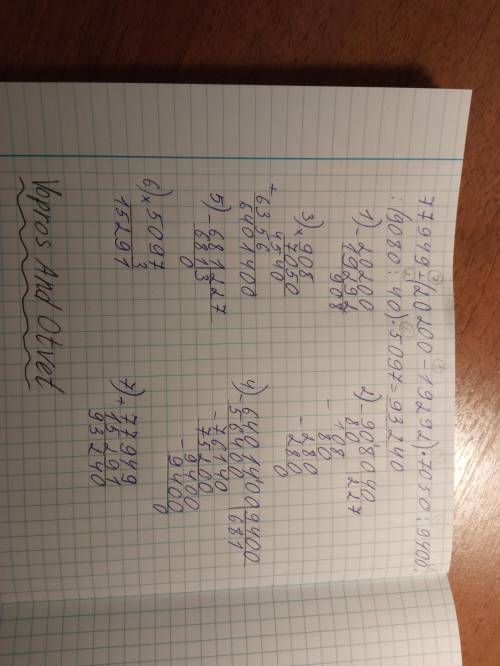 77949+(20200-19292)·7050:9400:
:(9080:40)·5097=93240
1) -20200
19292
908
2) -9080 40
80 227
-108
80
-280
280
0
3) ×908
7050
4540
+6356
6401400
4) -6401400 9400
56400 681
-76140
75200
-9400
9400
0
5) -681 227
681 3
0
6) ×5097
3
15291
7) +77949
15291
93240
Vopros And Otvet